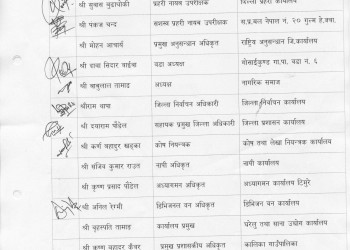 श्री सुवास बुढाथोकी प्रहरी नायब उपरीक्षक जिल्ला प्रहरी कार्यालय
श्री पंकज चन्द सशस्त्र प्रहरी नायब उपरीक्षक स.प्र.बल नेपाल नं. २० गुल्म हे.क्वा.
श्री मोहन आचार्य प्रमुख अनुसन्धान अधिकृत राष्ट्रिय अनुसन्धान जि.कार्यालय
श्री दावा सिदार वाईबा वडा अध्यक्ष गोसाईकुण्ड गा.पा. वडा नं. ६
श्री बाबुलाल तामाङ अध्यक्ष नागरिक समाज
श्रीराम थापा जिल्ला निर्वाचन अधिकारी जिल्ला निर्वाचन कार्यालय
श्री दयाराम पौडेल सहायक प्रमुख जिल्ला अधिकारी जिल्ला प्रशासन कार्यालय
श्री कर्ण बहादुर खड्का कोष नियन्त्रक कोष तथा लेखा नियन्त्रक कार्यालय
श्री सजिव कुमार राउत नापी अधिकृत नापी कार्यालय
श्री कृष्ण प्रसाद पौडेल अध्यागमन अधिकृत अध्यागमन कार्यालय टिमुरे
श्री अनिल रेग्मी डिभिजनल वन अधिकृत डिभिजन वन कार्यालय
श्री बृहस्पति तामाङ कार्यालय प्रमुख घरेलु तथा साना उद्योग कार्यालय
श्री कृष्ण बहादुर कुँवर प्रमुख प्रशासकीय अधिकृत कालिका गाउँपालिका